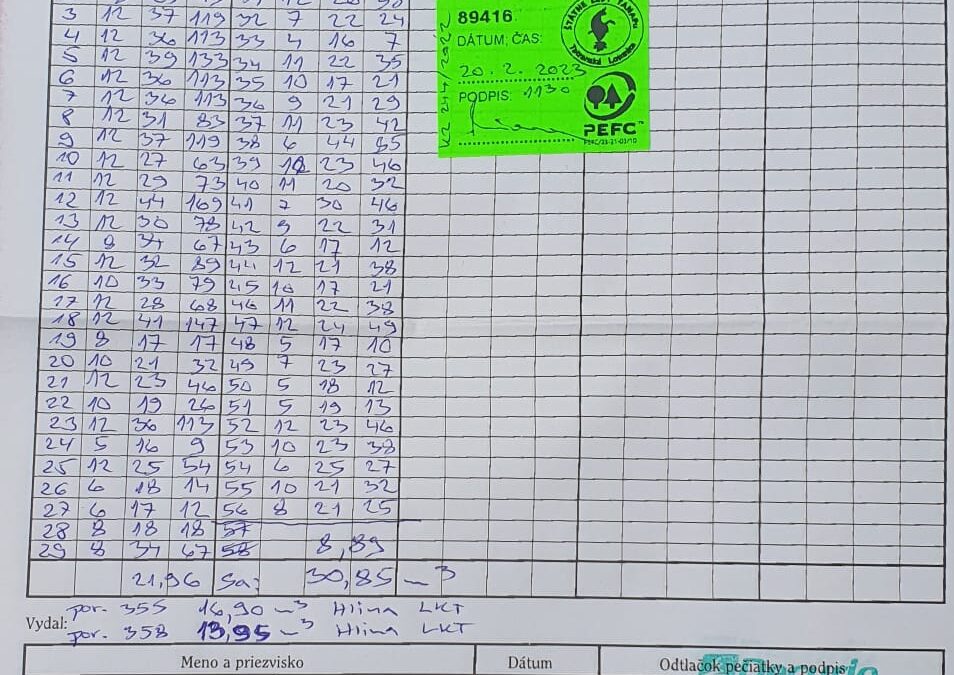 3 12 37 119 32 7 22 24
4 12 36 113 33 4 16 7
5 12 39 133 34 11 22 35
6 12 36 113 35 10 17 21
7 12 36 113 36 9 21 29
8 12 31 83 37 11 23 42
9 12 37 119 38 6 44
10 12 27 63 39 23 46
11 12 29 73 40 11 20 32
12 12 44 169 41 7 30 46
13 12 30 78 42 9 22 31
14 8 34 67 43 6 17 12
15 12 32 89 44 12 21 38
16 10 33 79 45 10 17 21
17 12 28 68 46 11 22 38
18 12 41 147 47 12 24 49
19 8 17 17 48 5 17 10
20 10 21 32 49 7 23 27
21 12 23 46 50 5 18 12
22 10 19 26 51 5 19 13
23 12 36 113 52 12 23 46
24 5 16 9 53 10 23 38
25 12 25 54 54 6 25 27
26 6 18 14 55 10 21 32
27 6 17 12 56 8 21 25
28 8 18 18 57
29 8 34 67 58 8,89
21,96 Sa: 30,85 m³
Vydal:
por. 355 16,90 m³ Hlina LKT
por. 358 13,95 m³ Hlina LKT
Meno a priezvisko Dátum Odtlačok pečiatky a podpis
89416
DÁTUM, ČAS:
20. 2. 2023
PODPIS: 1130
ŠTÁTNE LESY TANAPu
Tatranská Lomnica
PEFC™